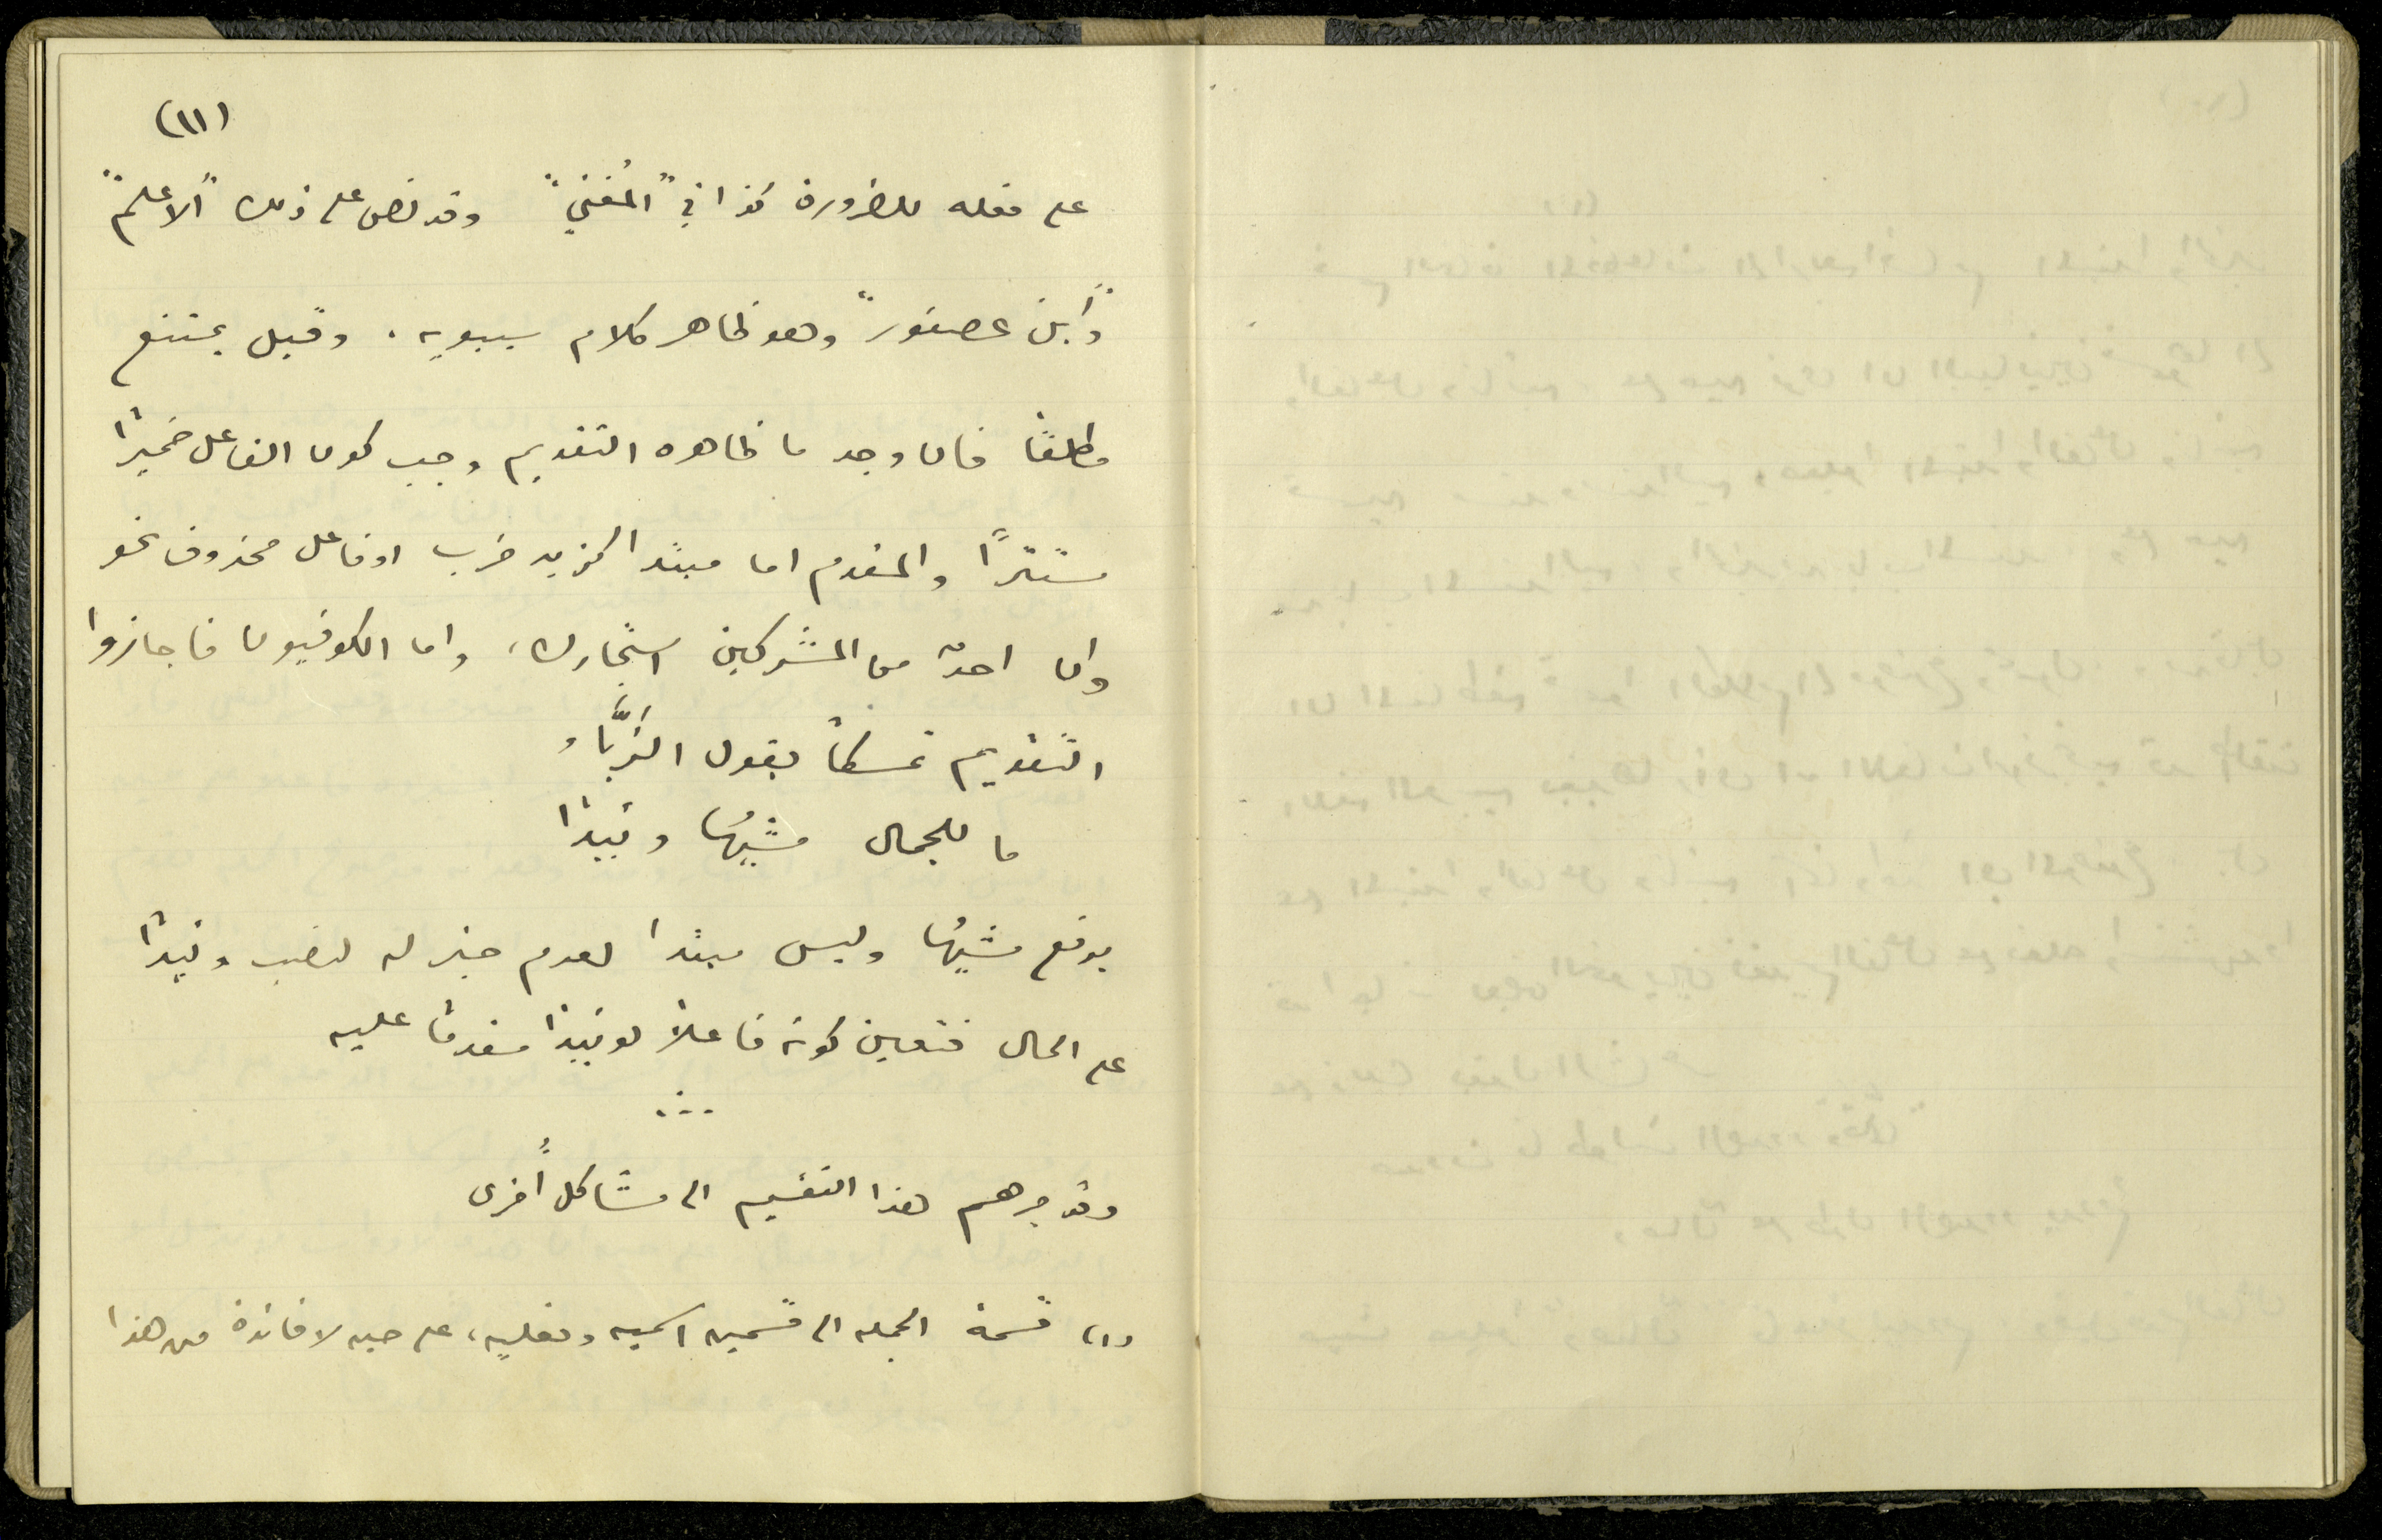 (١١)
على فعله للضرورة كذا في "المُغني" وقد نص على ذلك "الاعلم"
و"أبن عصفور" وهو ظاهر كلام سيبويه. وقيل يمتنع
مطلقًا فان وجد ما ظاهره التقديم وجب كون الفاعل ضميرًا
مستترًا والمقدم اما مبتدا كزيد ضرب او فاعل محذوف نحو
وان احدٌ من المشركين استجارك، واما الكوفيون فاجازوا
التقديم تمسكاً بقول الزَّباء
ما للجمال مشيُها وئيدًا
برفع مشيُها وليس مبتدا لعدم خبر له لنصب وئيدًا
على الحال فتعين كونه فاعلاً لوئيدًا مقدمًا عليه
وقد جرهم هذا التقسيم الى مشاكل أُخرى
(١) قسمة الجمله الى قسمين اسميه وفعليه، على حين لا فائدة من هذا